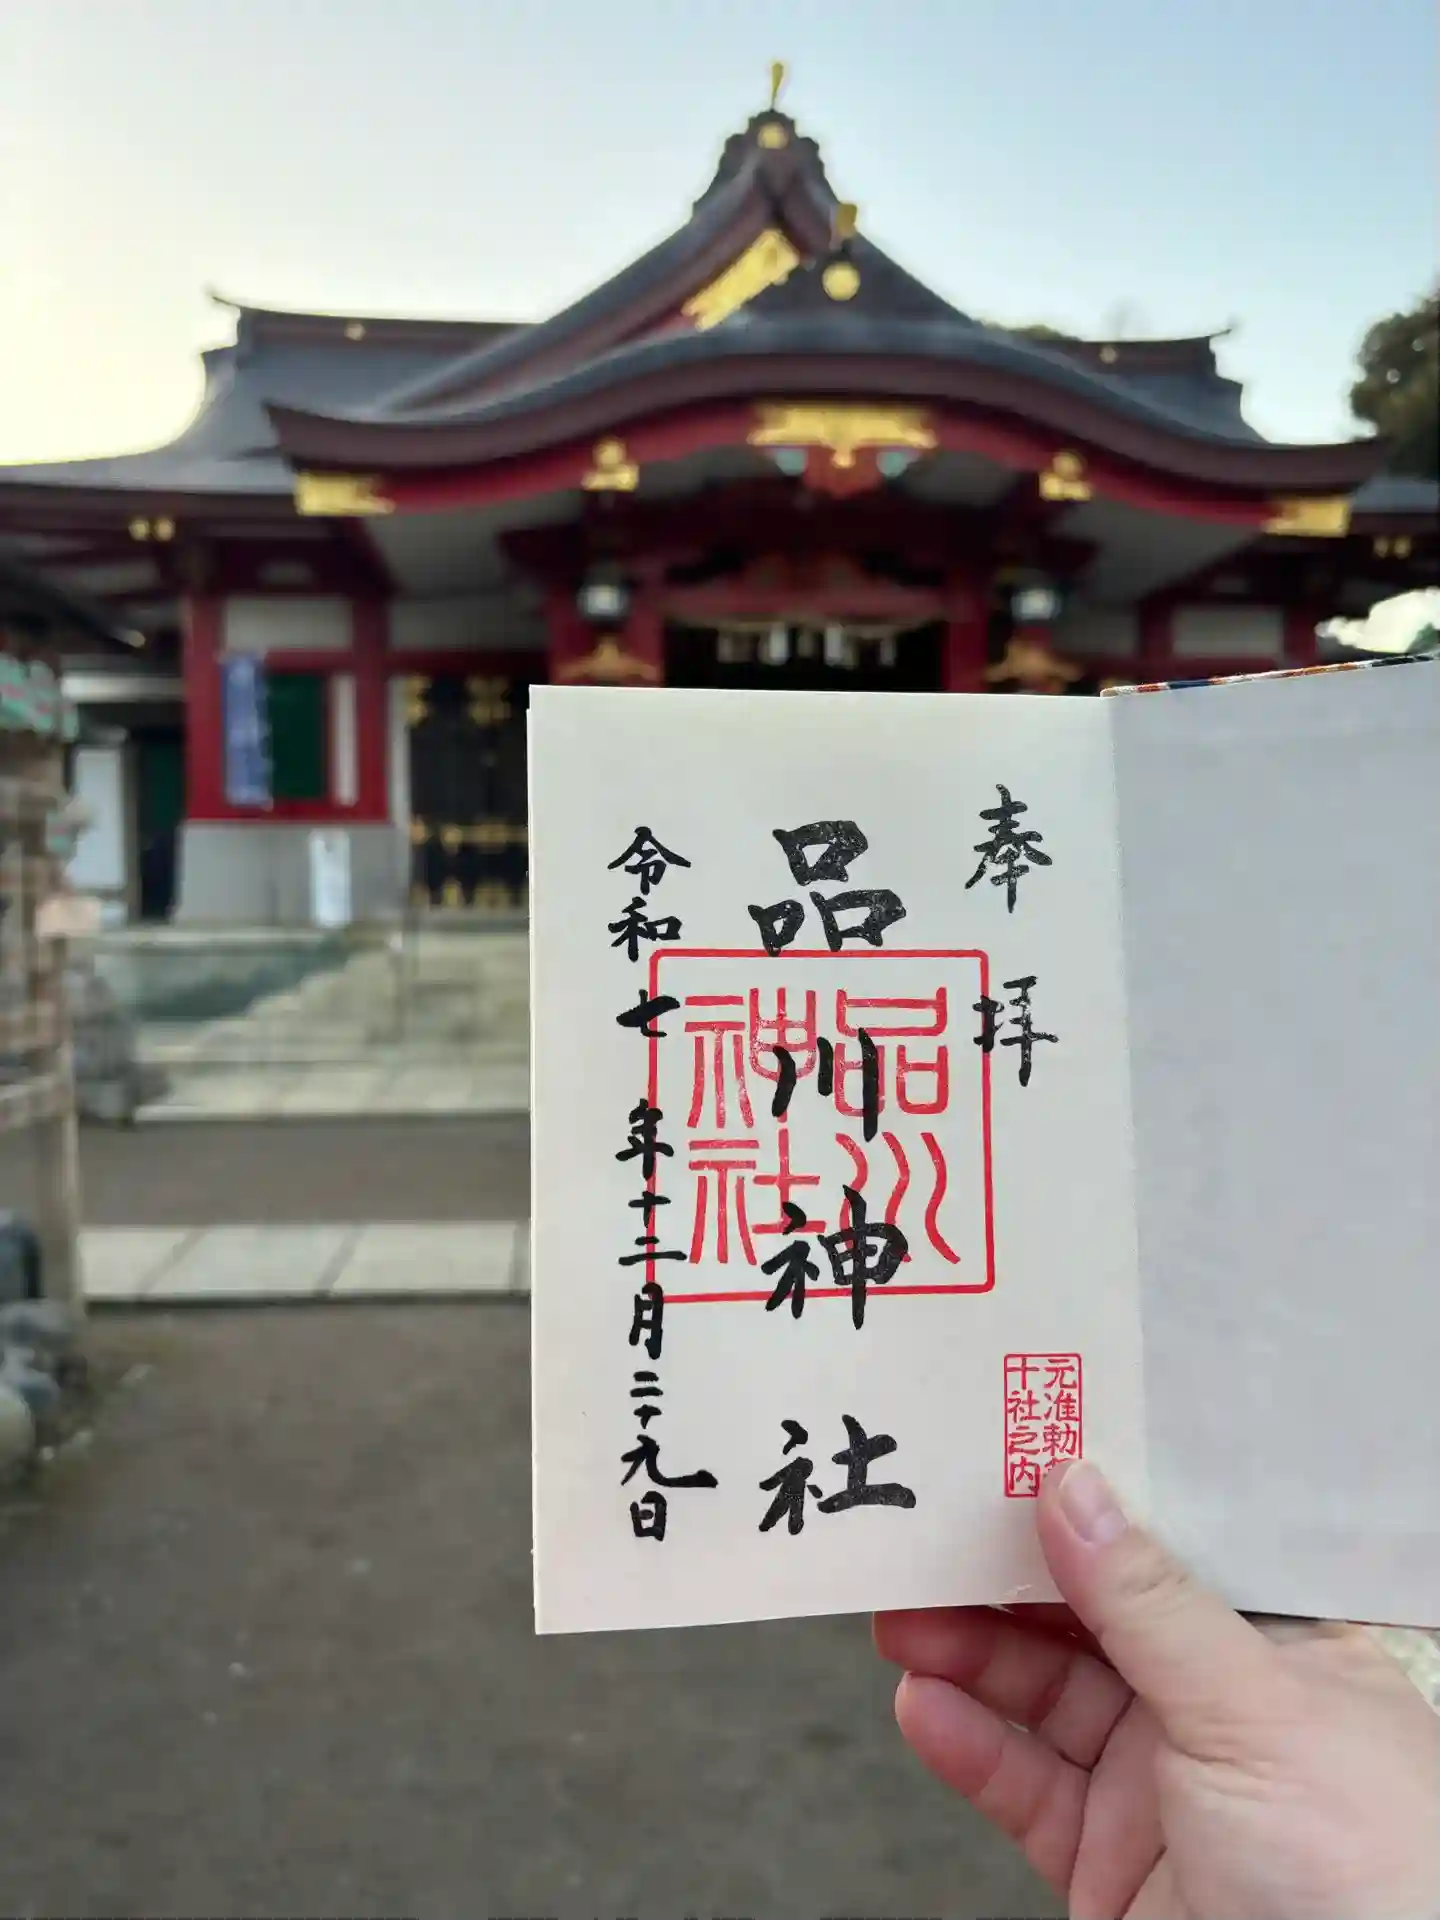 奉拝
品川神社
品川
神社
令和七年十二月二十九日
元准勅
十社之内